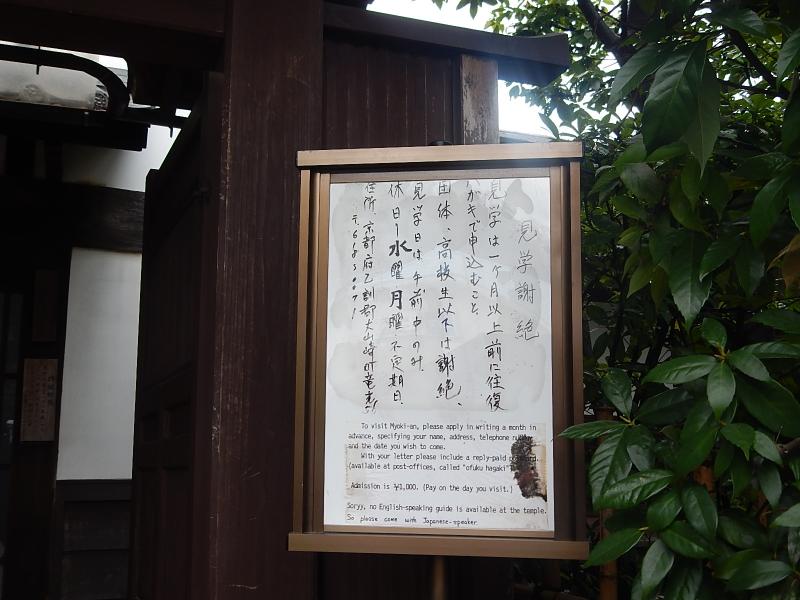 見学謝絶
見学は一ヶ月以上前に往復
はがきで申込むこと、
団体、高校生以下は謝絶、
見学日は午前中のみ、
休日ー水曜月曜不定期日
住所、京都府乙訓郡大山崎町竜光
〒6180071
To visit Myoki-an, please apply in writing a month in
advance, specifying your name, address, telephone number
and the date you wish to come.
With your letter please include a reply-paid postcard.
(available at post-offices, called "ofuku hagaki")
Admission is ¥1,000. (Pay on the day you visit.)
Soryy, no English-speaking guide is available at the temple.
So please come with Japanese-speaker.